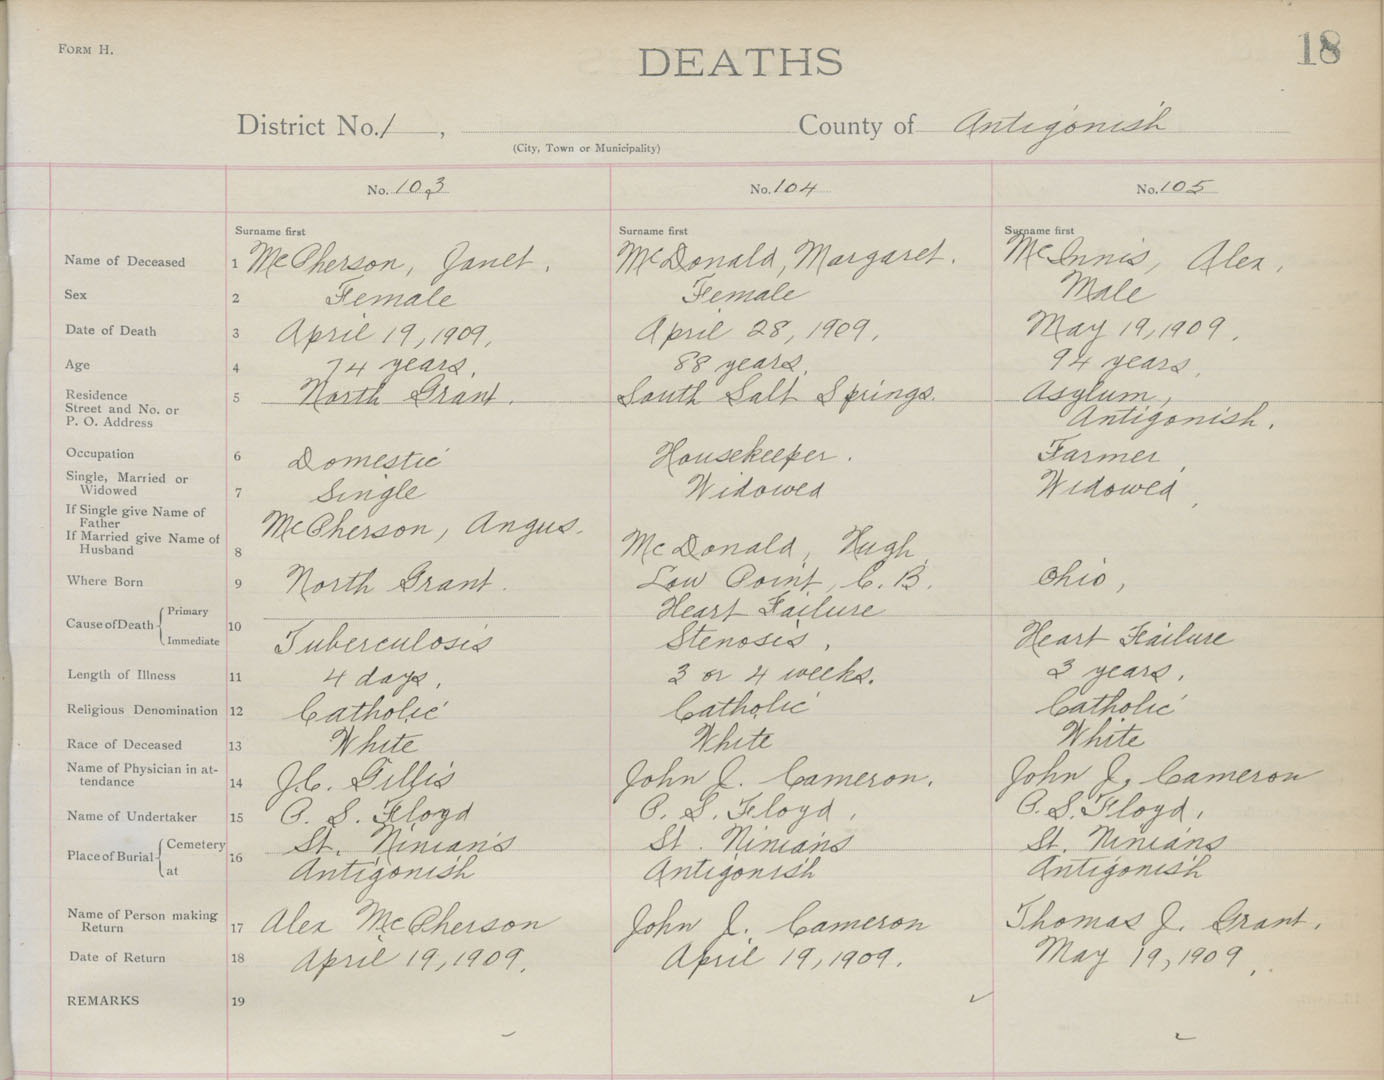 Form H.
DEATHS
18
District No. 1, County of Antigonish
(City, Town or Municipality)
No. 103 No. 104 No. 105
Surname first Surname first Surname first
Name of Deceased 1 McPherson, Janet. McDonald, Margaret. McInnis, Alex,
Sex 2 Female Female Male
Date of Death 3 April 19, 1909. April 28, 1909. May 19, 1909.
Age 4 74 years. 88 years. 94 years.
Residence Street and No. or P. O. Address 5 North Grant. South Salt Springs. Asylum, Antigonish.
Occupation 6 Domestic Housekeeper. Farmer,
Single, Married or Widowed 7 Single Widowed Widowed,
If Single give Name of Father McPherson, Angus.
If Married give Name of Husband 8 McDonald, Hugh,
Where Born 9 North Grant. Low Point, C. B. Ohio,
Cause of Death 10 Primary Heart Failure
Immediate Tuberculosis Stenosis, Heart Failure
Length of Illness 11 4 days, 3 or 4 weeks. 3 years.
Religious Denomination 12 Catholic Catholic Catholic
Race of Deceased 13 White White White
Name of Physician in attendance 14 J.C. Gillis John J. Cameron. John J. Cameron
Name of Undertaker 15 P. S. Floyd P. S. Floyd, P. S. Floyd,
Place of Burial 16 Cemetery St. Ninian's St. Ninian's St. Ninian's
at Antigonish Antigonish Antigonish
Name of Person making Return 17 Alex McPherson John J. Cameron Thomas J. Grant.
Date of Return 18 April 19, 1909. April 19, 1909. May 19, 1909.
REMARKS 19